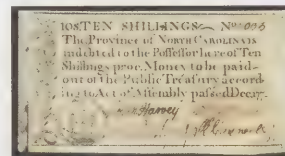 10S. TEN SHILLINGS No
The Province of NORTH CAROLINA is
indebted to the Possessor hereof Ten
Shillings proc. Money to be paid
out of the Public Treasury accord-
ing to Act of Assembly passed Dec.
Harvey